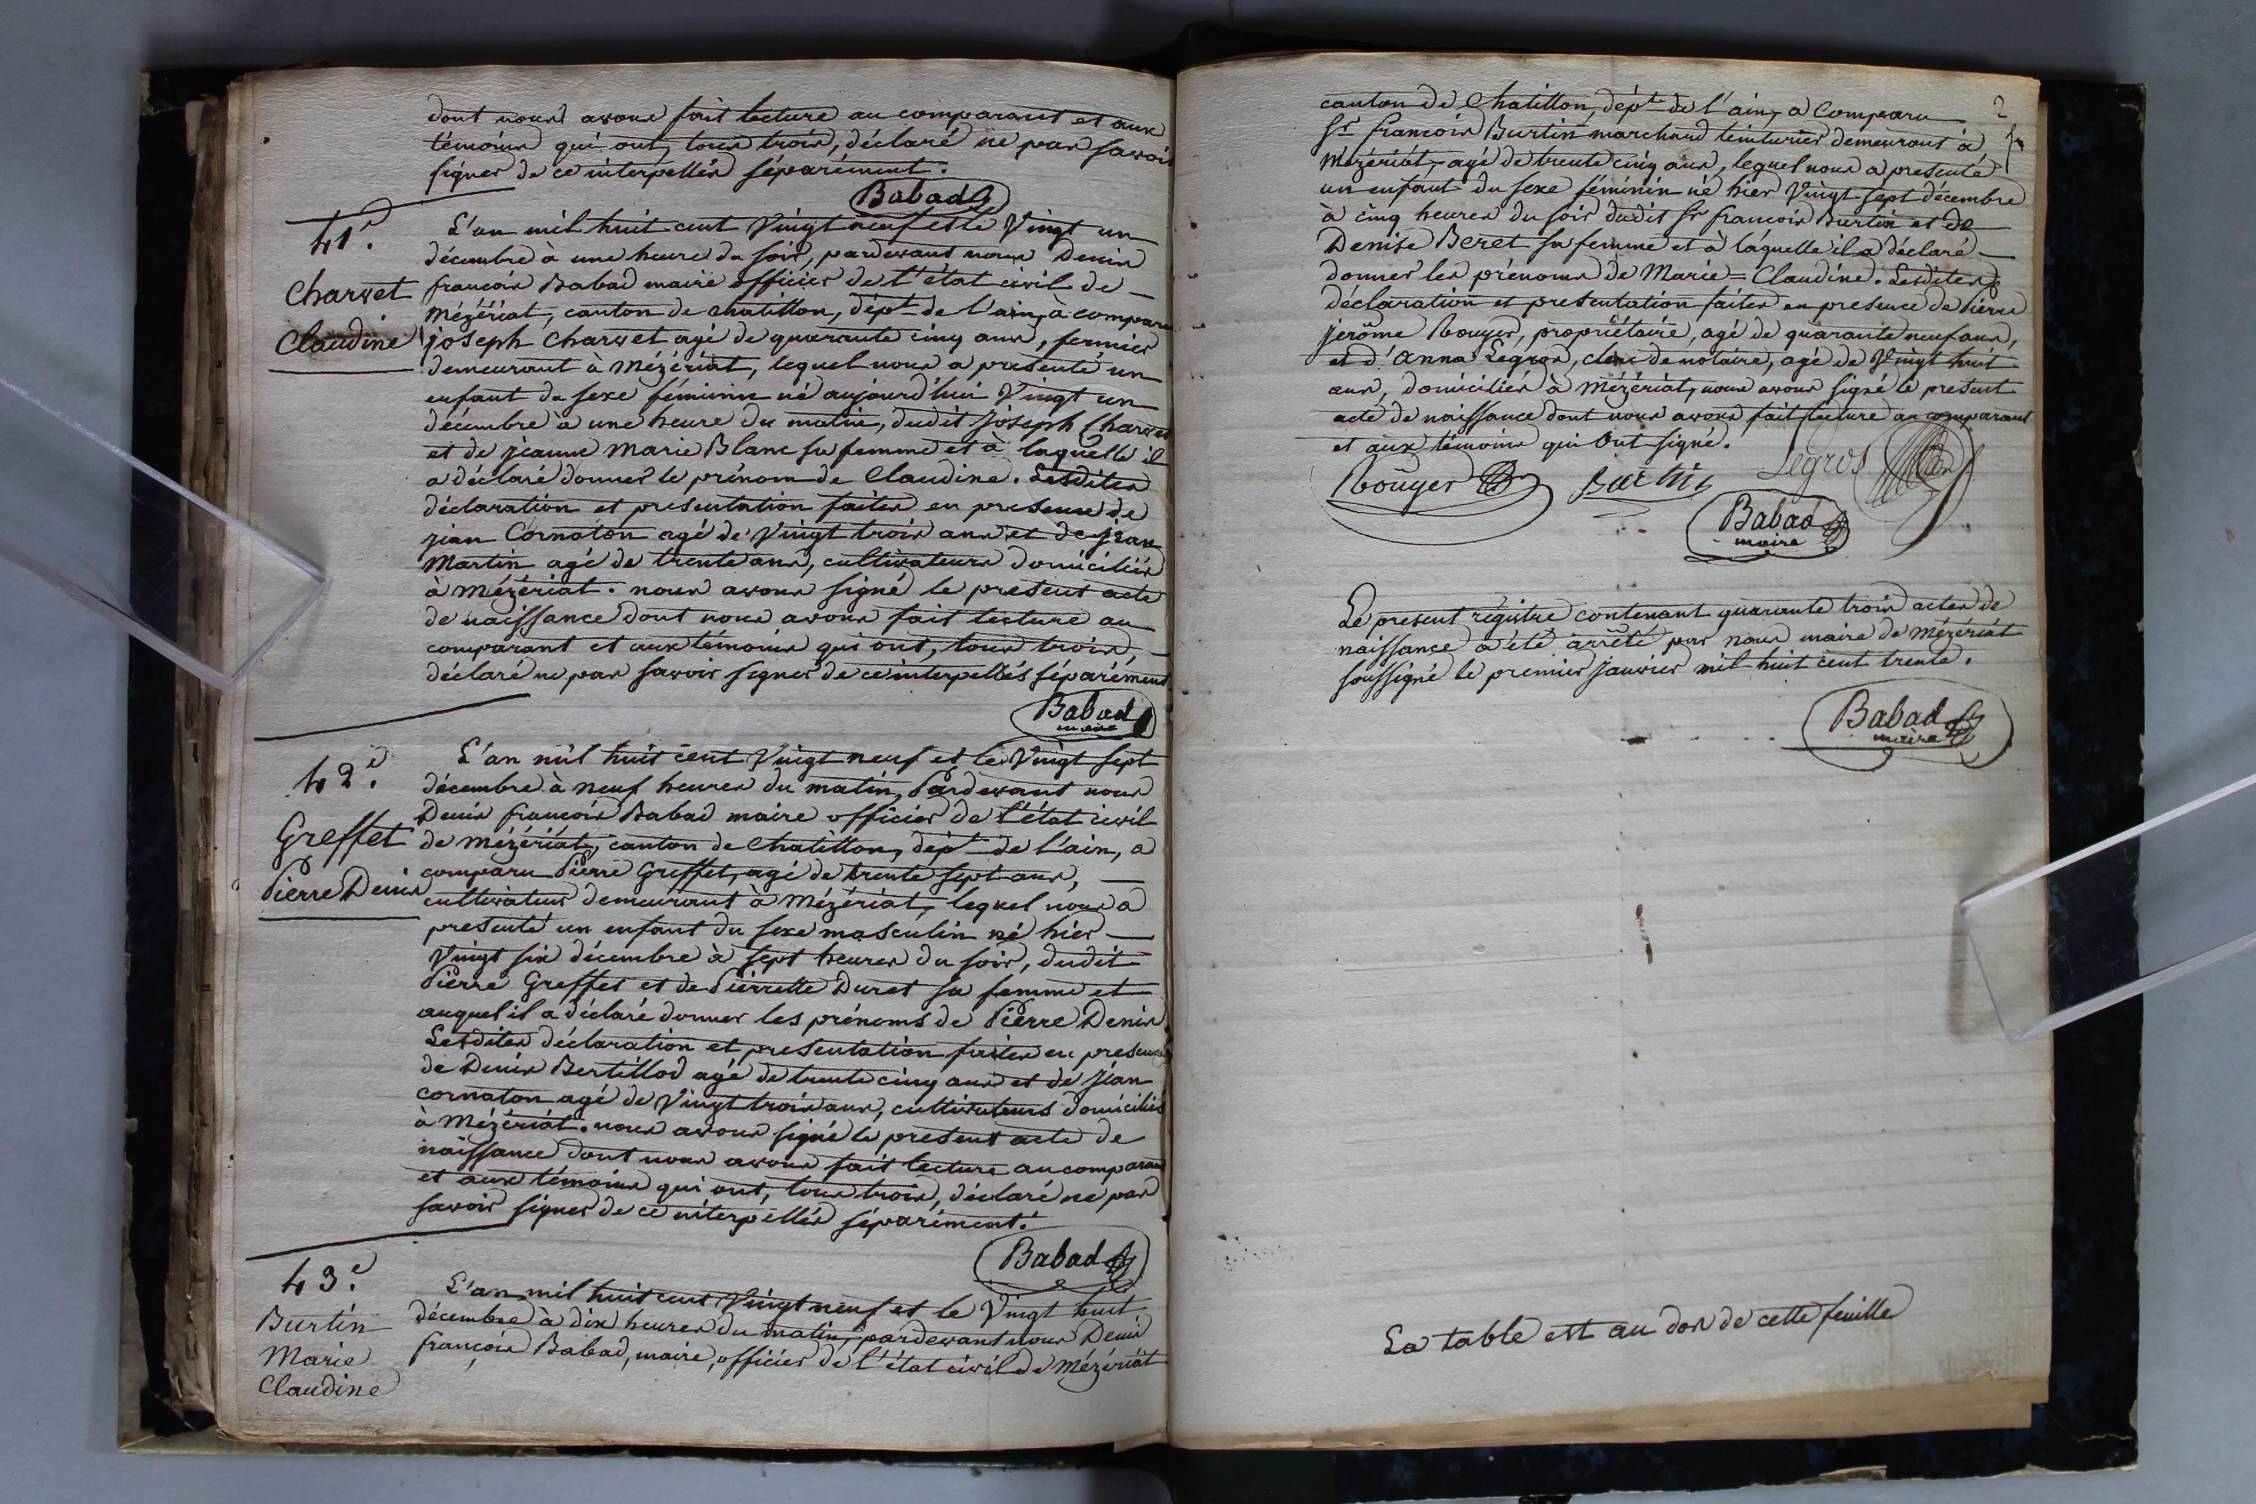 dont nous avons fait lecture au comparant et aux
témoins qui ont, tous trois, déclaré ne pas savoir
signer de ce interpellés séparément.
Babad
41e.
Charvet
Claudine
L'an mil huit cent Vingt neuf et le Vingt un
décembre à une heure du soir, pardevant nous Denis
françois Babad maire officier de l'état civil de
Mézériat, canton de chatillon, dépt de l'ain, à comparu
joseph Charvet agé de quarante cinq ans, fermier
demeurant à Mézériat, lequel nous a presenté un
enfant du sexe féminin né aujourd'hui Vingt un
décembre à une heure du matin, dudit Joseph Charvet
et de jeanne Marie Blanc sa femme et à laquelle il
a déclaré donner le prénom de Claudine. Lesdites
déclaration et presentation faites en presence de
jean Cornaton agé de Vingt trois ans et de jean
Martin agé de trente ans, cultivateurs domiciliés
à Mézériat. nous avons signé le present acte
de naissance dont nous avons fait lecture au
comparant et aux témoins qui ont, tous trois,
déclaré ne pas savoir signer de ce interpellés séparément
Babad
maire
42e.
Greffet
Pierre Denis
L'an mil huit cent Vingt neuf et le Vingt sept
décembre à neuf heures du matin, Pardevant nous
Denis françois Babad maire officier de l'état civil
de Mézériat, canton de Chatillon, dépt de l'ain, a
comparu Pierre Greffet, agé de trente sept ans,
cultivateur demeurant à Mézériat, lequel nous a
presenté un enfant du sexe masculin né hier
Vingt six décembre à sept heures du soir, dudit
Pierre Greffet et de Pierrette Duret sa femme et
auquel il a déclaré donner les prénoms de Pierre Denis
Lesdites déclaration et presentation faites en presence
de Denis Bertillod agé de trente cinq ans et de jean
cornaton agé de Vingt trois ans, cultivateurs domiciliés
à Mézériat. nous avons signé le present acte de
naissance dont nous avons fait lecture au comparant
et aux témoins qui ont, tous trois, déclaré ne pas
savoir signer de ce interpellés séparément.
Babad
43e.
Burtin
Marie
Claudine
L'an mil huit cent Vingt neuf et le Vingt huit
décembre à dix heures du matin, pardevant nous Denis
françois Babad, maire, officier de l'état civil de Mézériat
canton de Chatillon, dépt de l'ain, a Comparu
Sr. françois Burtin marchand teinturier demeurant à
Mézériat, agé de trente cinq ans, lequel nous a presenté
un enfant du sexe féminin né hier Vingt sept décembre
à cinq heures du soir dudit Sr françois Burtin et de
Denise Beret sa femme et à laquelle il a déclaré
donner les prénoms de Marie=Claudine. Lesdites
déclaration et presentation faites en presence de Pierre
jerôme Rouyer, propriétaire, agé de quarante neuf ans,
et d'Anna Legros, clerc de notaire, agé de Vingt huit
ans, domiciliés à Mézériat, nous avons signé le present
acte de naissance dont nous avons fait lecture au comparant
et aux témoins qui Ont signé.
Rouyer Burtin Legros
Babad
maire
Le present registre contenant quarante trois actes de
naissance a été arrêté par nous maire de Mézériat
soussigné le premier Janvier mil huit cent trente.
Babad
maire
La table est au dos de cette feuille